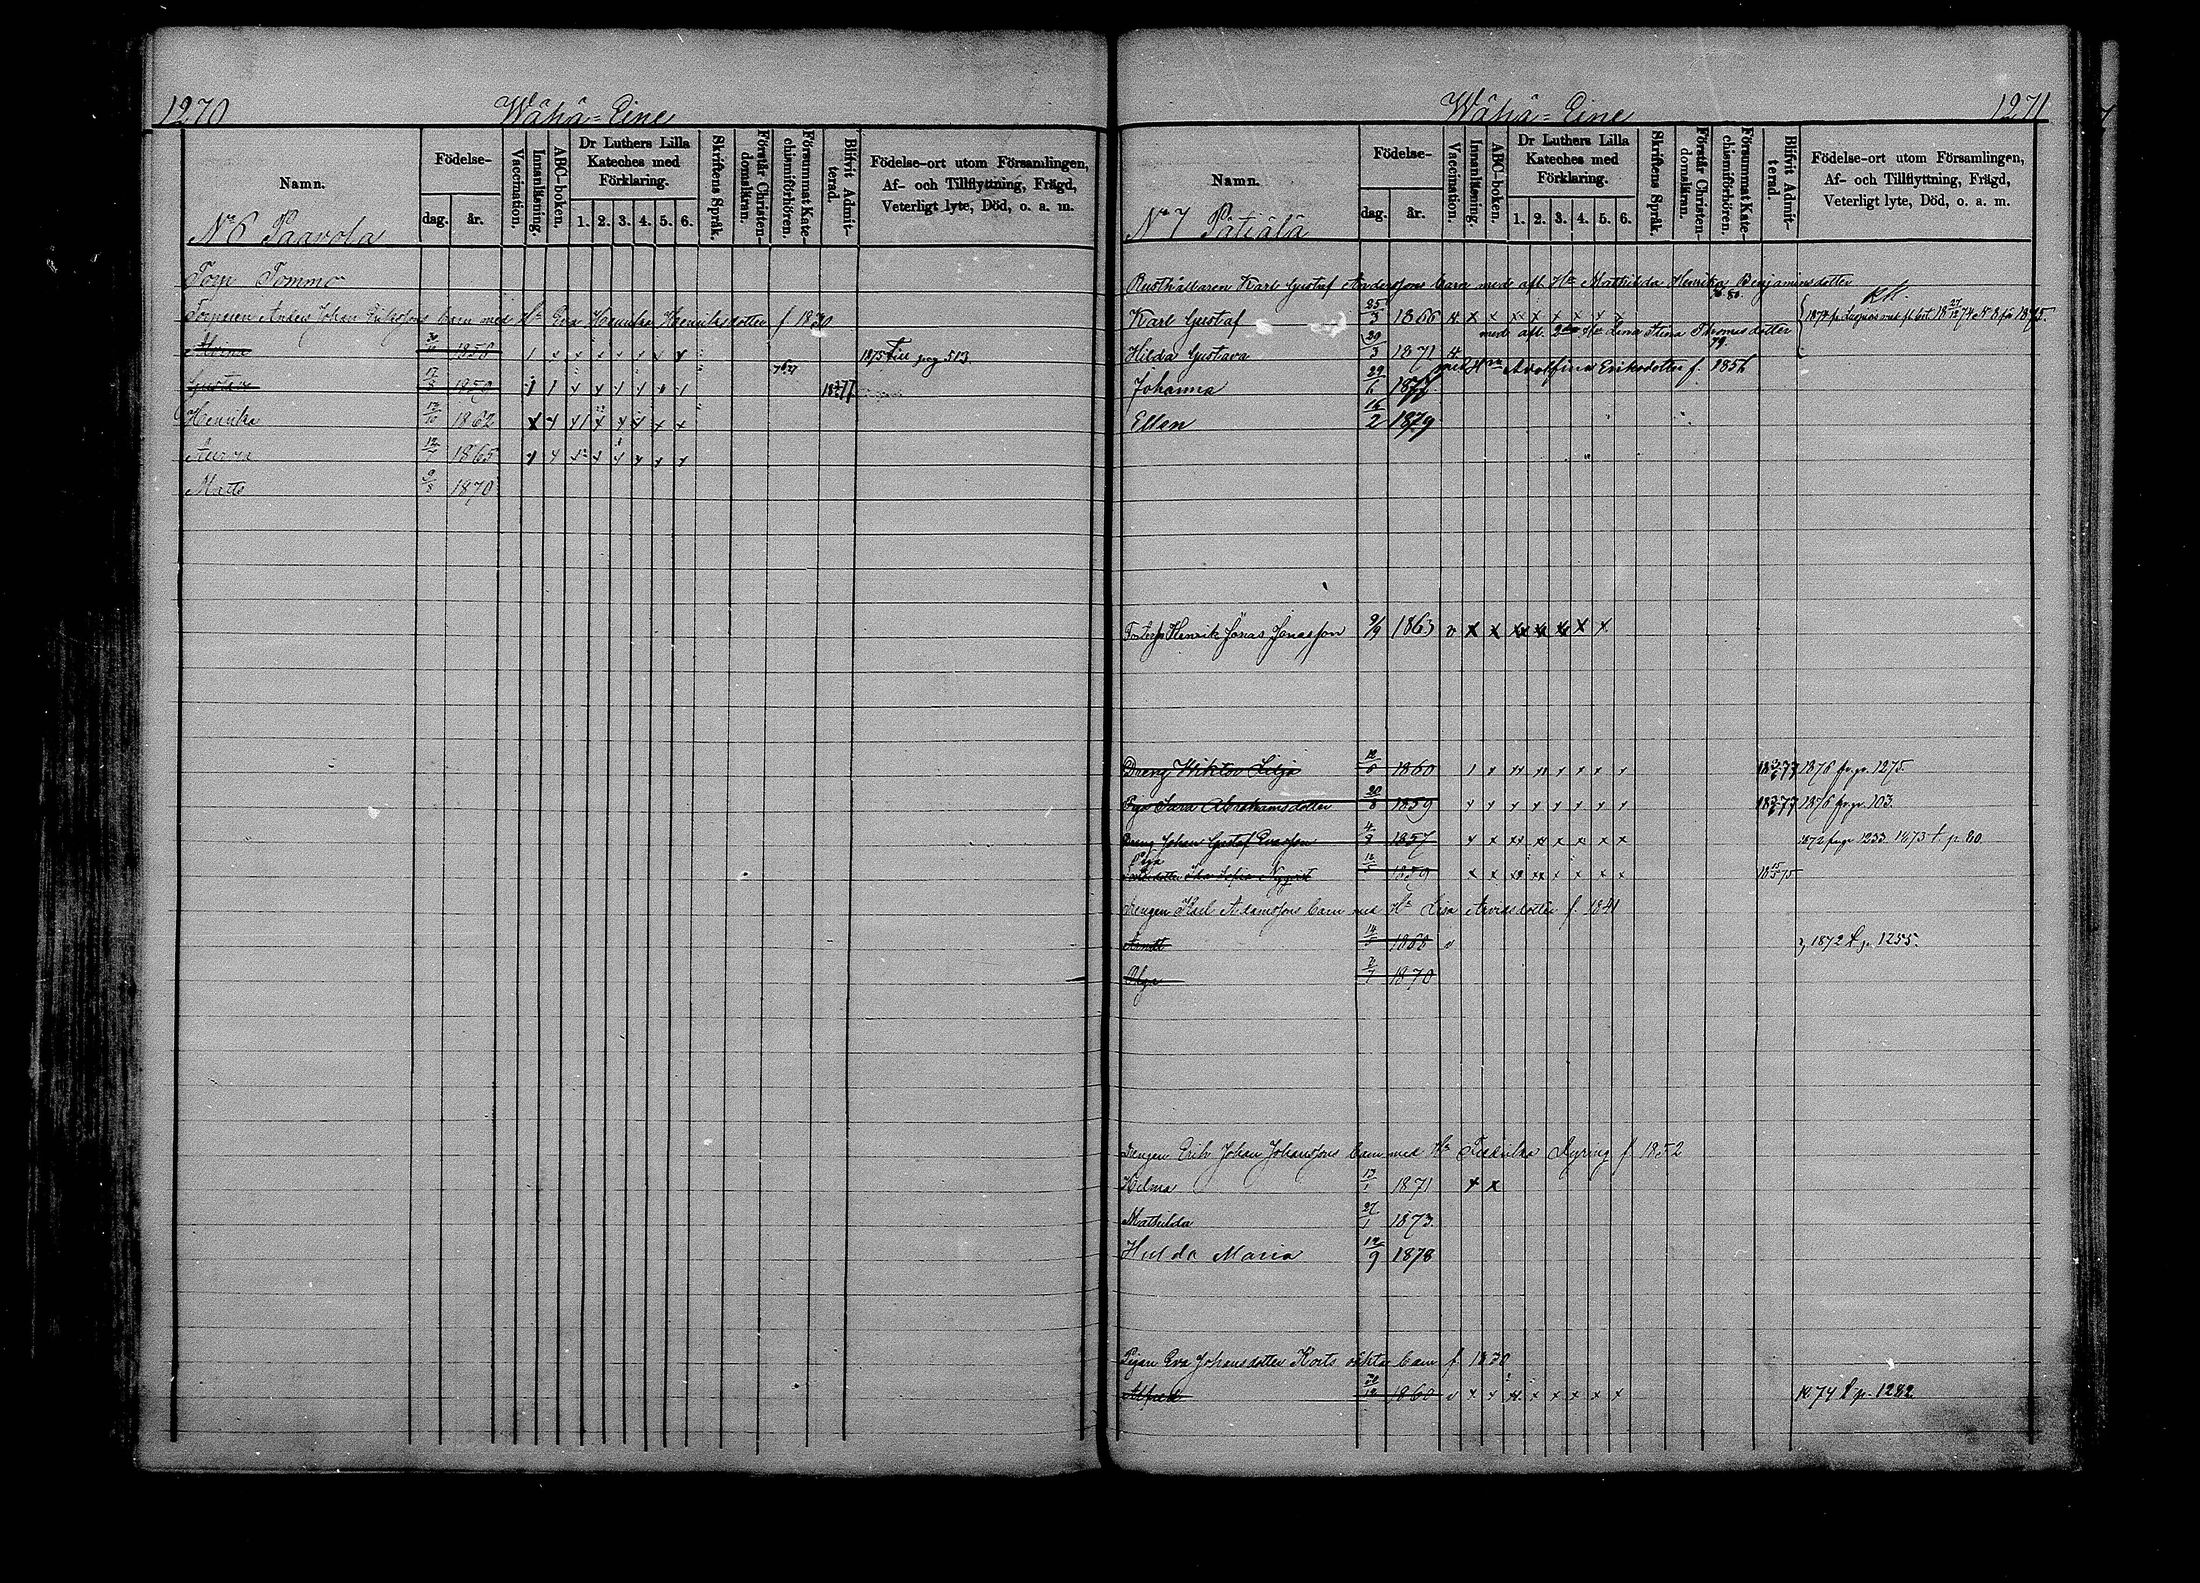 1270 Wähä-Eine
Namn.
Födelse-
dag. år.
Vaccination.
Innanläsning.
ABC-boken.
Dr Luthers Lilla Kateches med Förklaring.
1. 2. 3. 4. 5. 6.
Skriftens Språk.
Förstår Christendomsläran.
Försummat Katechismiförhören.
Blifvit Admitterad.
Födelse-ort utom Församlingen, Af- och Tillflyttning, Frägd, Veterligt lyte, Död, o. a. m.
No 6 Paavola
Torp Tommo
Torparen Anders Johan Erikssons barn med Ha Eva Henrika Henriksdotter f 1830
1856 1875 Till pag 513
Gustav 17/3 1859
Henrika 1862
1865
Matts 9/8 1870
Wähä-Eine 1271
Namn.
Födelse-
dag. år.
Vaccination.
Innanläsning.
ABC-boken.
Dr Luthers Lilla Kateches med Förklaring.
1. 2. 3. 4. 5. 6.
Skriftens Språk.
Förstår Christendomsläran.
Försummat Katechismiförhören.
Blifvit Admitterad.
Födelse-ort utom Församlingen, Af- och Tillflyttning, Frägd, Veterligt lyte, Död, o. a. m.
No 7 Pätiälä
Rusthållaren Karl Gustaf Anderssons barn med afl. Ha Mathilda Henrika Benjaminsdotter
Karl Gustaf 25/3 1866
med afl. 2dra Ha Lena Stina Thomasdotter
Hilda Gustava 29/3 1871
med Ha Adolfina Eriksdotter f. 1856
Johanna 29/6 1877
Ellen 16/2 1879
Henrik Jonas Jonasson 9/9 1863
Dreng Wiktor Lilja 1860 1876 fr.p. 1275.
Pig. Sara Abrahamsdotter 20/8 1859 1876 fr.p. 103.
Dreng Johan Gustaf 1857 1872 fr.p. 1233. 1873 t. p. 80
Piga
Sofia Nyqvist 1859
Drengen Karl Adamssons barn med Ha Lisa Arvidsdotter f. 1841
1868 1872 t. p. 1255.
Olga 1870
Drengen Erik Johan Johanssons barn med Ha Fredrika Dyring f 1852
Hilma 13/1 1871
Mathilda 27/1 1873.
Hulda Maria 19/9 1878
Pigan Eva Johansdotter Korts oäkta barn f. 1830
Alfred 1860 1874 t p. 1282.